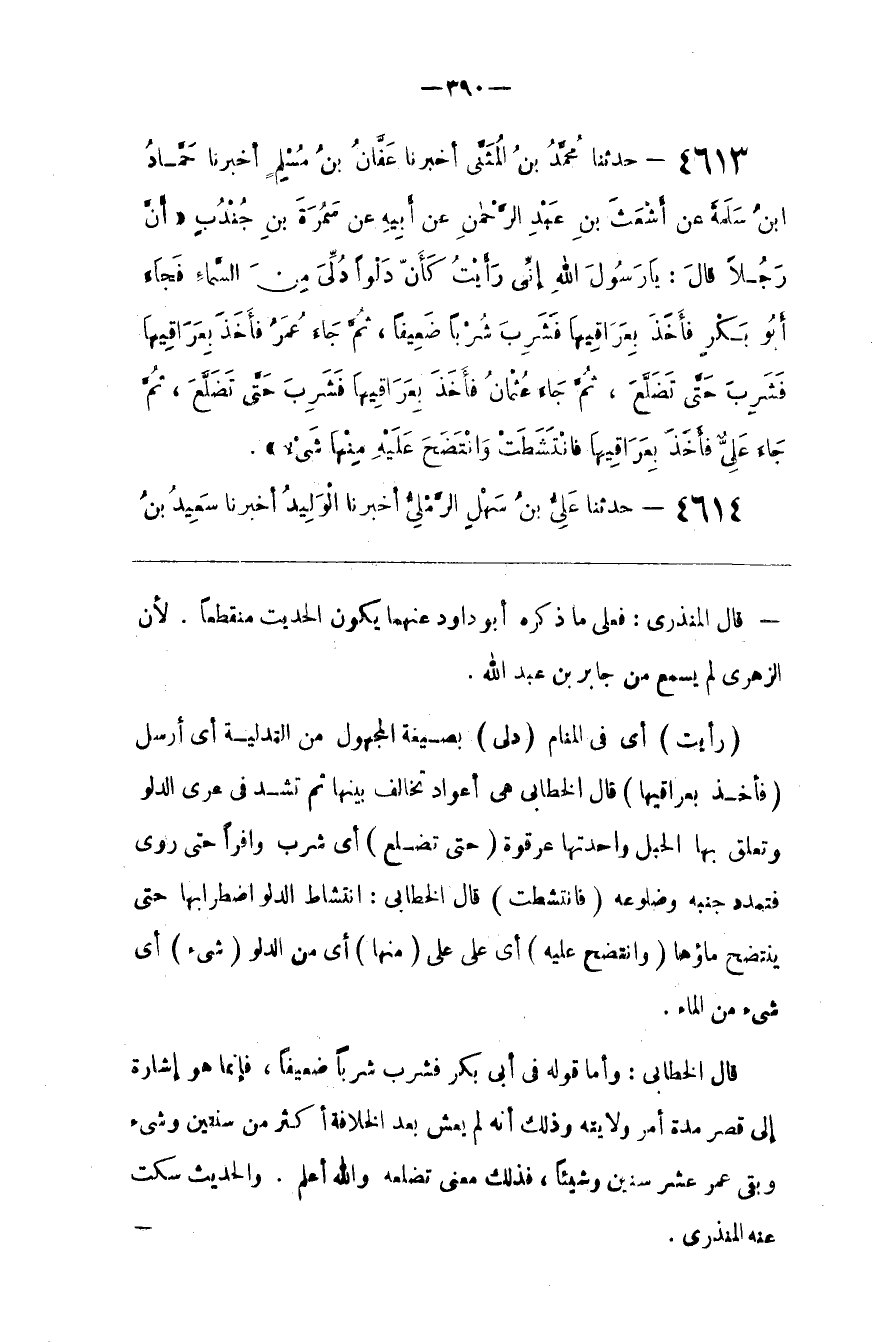 — ٣٩٠ —
٤٦١٣ — حدثنا مُحمَّدُ بنُ الْمُثَنَّى أخبرنا عَفَّانُ بنُ مُسْلِمٍ أخبرنا حَمَّادُ
ابنُ سَلَمَةَ عن أَشْعَثَ بنِ عَبْدِ الرَّحْمٰنِ عن أَبِيهِ عن سَمُرَةَ بنِ جُنْدُبٍ « أَنَّ
رَجُلاً قالَ : يَارَسُولَ اللهِ إِنِّى رَأَيْتُ كَأَنّ دَلْواً دُلِّىَ مِنَ السَّمَاءِ فَجَاءَ
أَبُو بَكْرٍ فأَخَذَ بِعَرَاقِيهاَ فَشَرِبَ شُرْباً ضَعِيفاً ، ثُمَّ جَاءَ عُمَرُ فأَخَذَ بِعَرَاقِيهاَ
فَشَرِبَ حَتَّى تَضَلَّعَ ، ثُمَّ جَاءَ عُثْمانُ فأَخَذَ بِعَرَاقِيهاَ فَشَرِبَ حَتَّى تَضَلَّعَ ، ثُمَّ
جَاءَ عَلِيٌّ فأَخَذَ بِعَرَاقِيهاَ فانْتَشَطَتْ وَانْتَضَحَ عَلَيْهِ مِنْهاَ شَىْءٌ » .
٤٦١٤ — حدثنا عَلِيُّ بنُ سَهْلٍ الرَّمْلِيُّ أخبرنا الْوَلِيدُ أخبرنا سَعِيدُ بنُ
— قال المنذرى : فعلى ما ذكره أبو داود عنهما يكون الحديث منقطعاً . لأن
الزهرى لم يسمع من جابر بن عبد الله .
( رأيت ) أى فى المنام ( دلى ) بصيغة المجهول من التدلية أى أرسل
( فأخذ بعراقيها ) قال الخطابى هى أعواد تخالف بينها ثم تشد فى عرى الدلو
وتعلق بها الحبل واحدتها عرقوة ( حتى تضلع ) أى شرب وافراً حتى روى
فتمدد جنبه وضلوعه ( فانتشطت ) قال الخطابى : انتشاط الدلو اضطرابها حتى
ينتضح ماؤها ( وانتضح عليه ) أى على على ( منها ) أى من الدلو ( شىء ) أى
شىء من الماء .
قال الخطابى : وأما قوله فى أبى بكر فشرب شرباً ضعيفاً ، فإنما هو إشارة
إلى قصر مدة أمر ولايته وذلك أنه لم يعش بعد الخلافة أكثر من سنتين وشىء
وبقى عمر عشر سنين وشيئاً ، فذلك معنى تضلعه والله أعلم . والحديث سكت
عنه المنذرى . —